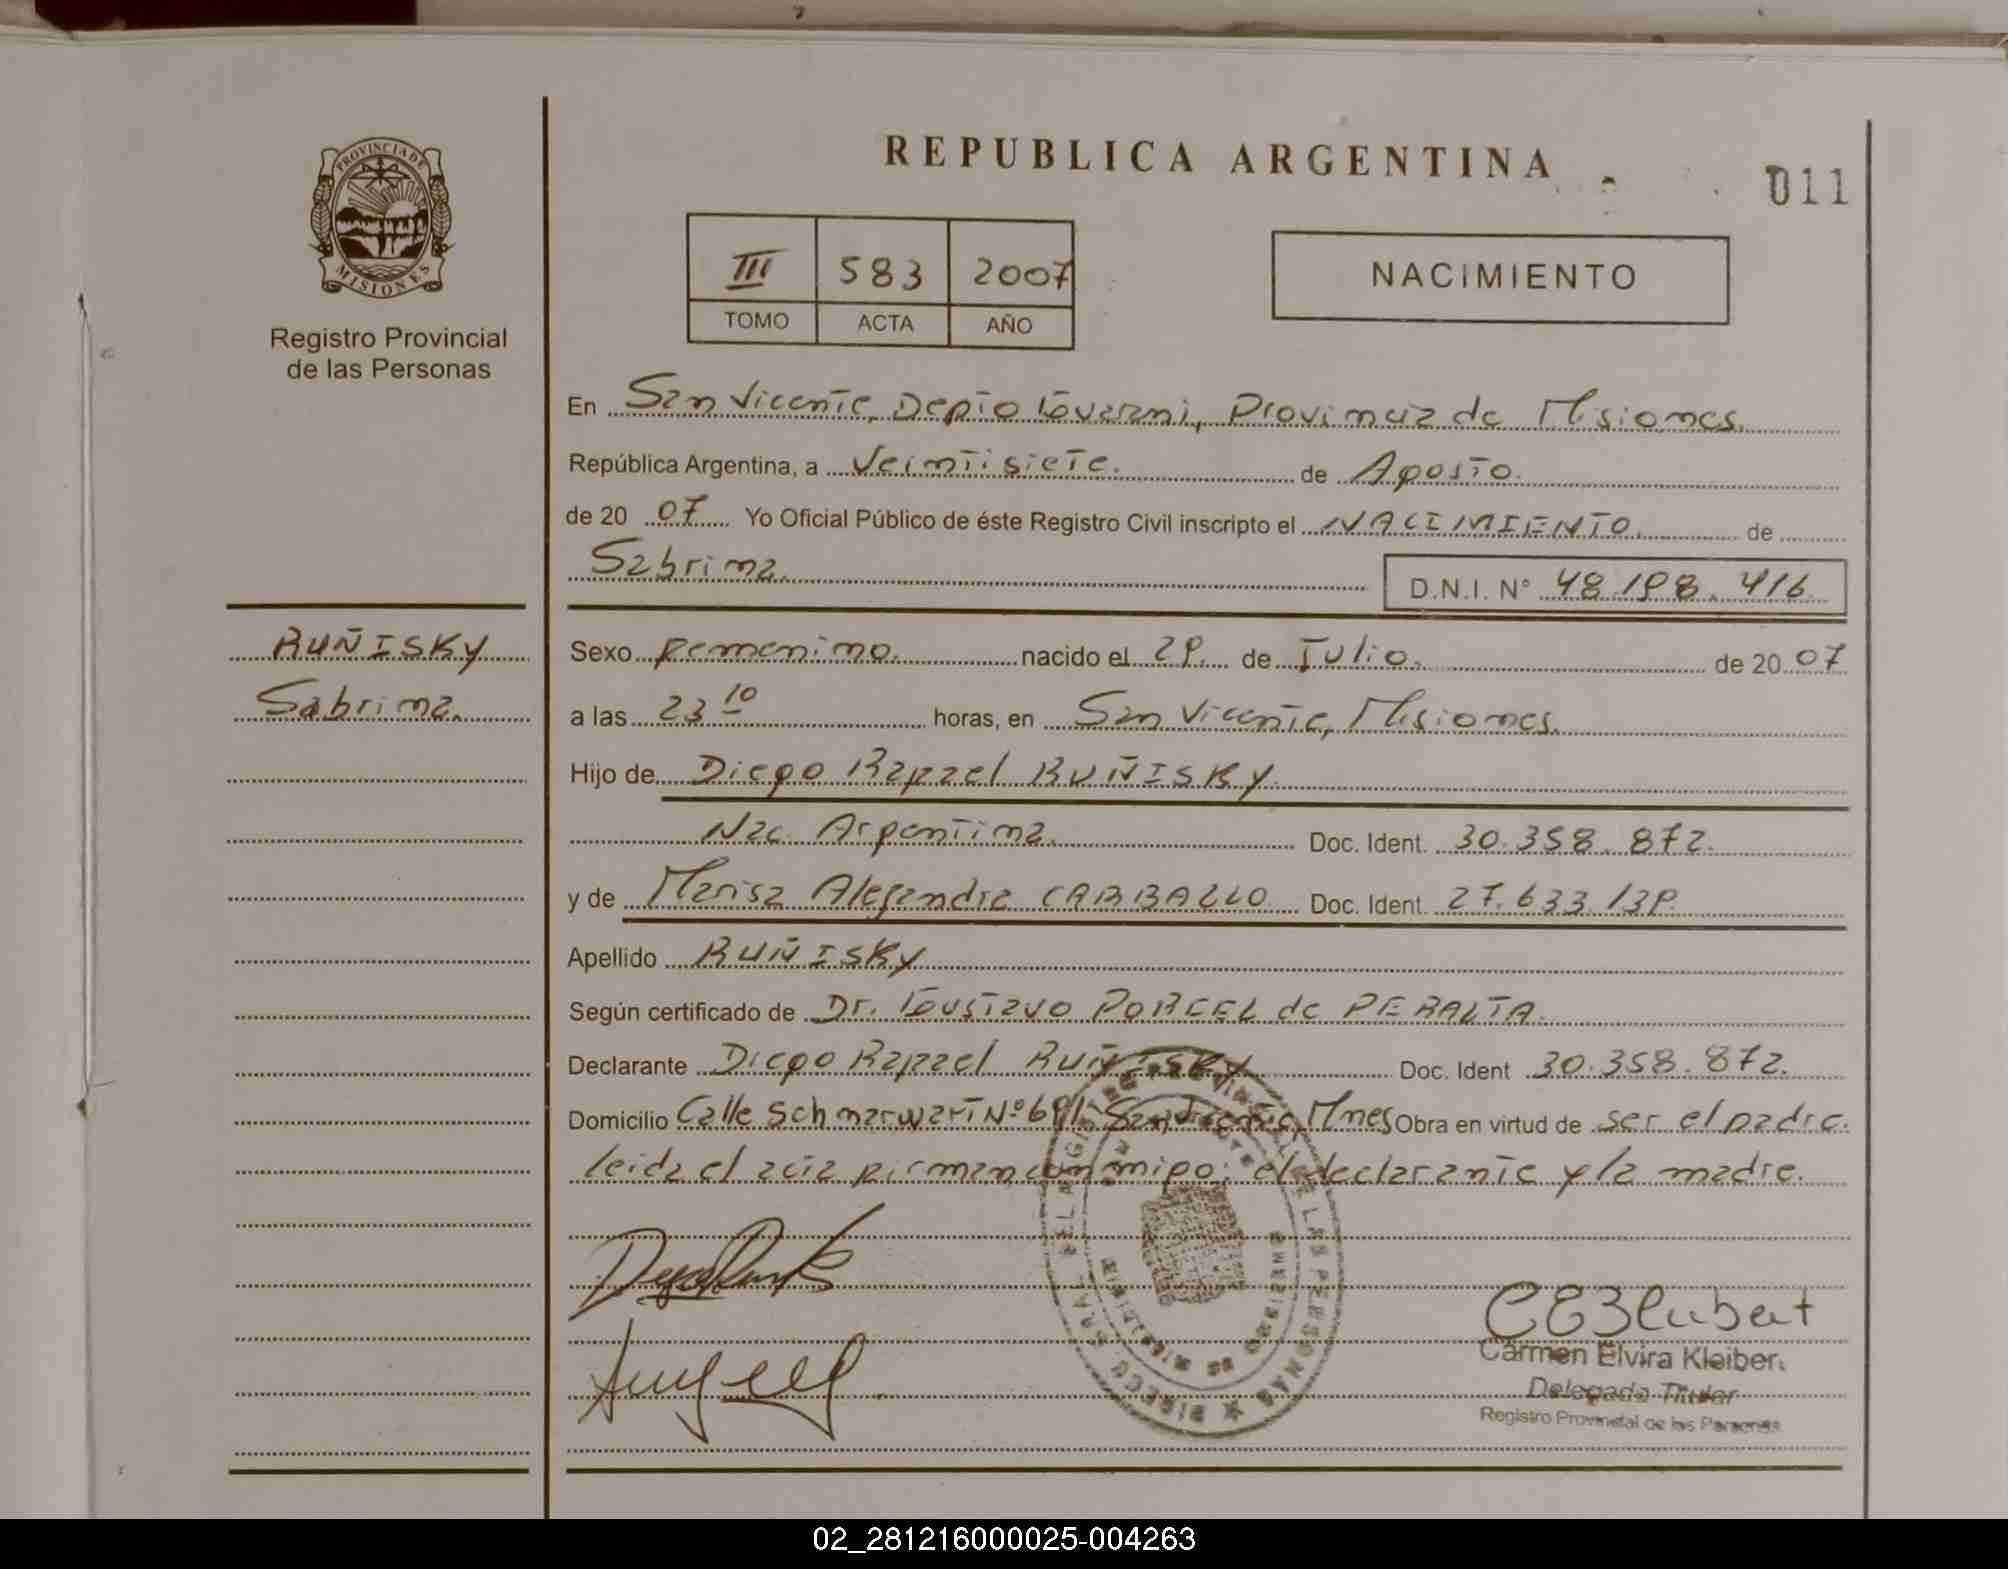 REPUBLICA ARGENTINA
011
PROVINCIA DE MISIONES
Registro Provincial
de las Personas
III 583 2007
TOMO ACTA AÑO
NACIMIENTO
En San Vicente, Depto Guarani, Provincia de Misiones.
República Argentina, a Veintisiete. de Agosto.
de 20 07 Yo Oficial Público de éste Registro Civil inscripto el NACIMIENTO. de
Sabrina. D.N.I. N° 48.198.416
RUÑISKY
Sabrina.
Sexo femenino. nacido el 29. de Julio. de 20 07
a las 23 10 horas, en San Vicente, Misiones.
Hijo de Diego Rafael RUÑISKY.
Nac. Argentina. Doc. Ident. 30.358.872.
y de Marisa Alejandra CARBALLO Doc. Ident. 27.633.139.
Apellido RUÑISKY
Según certificado de Dr. Gustavo PORCEL de PERALTA.
Declarante Diego Rafael RUÑISKY Doc. Ident 30.358.872.
Domicilio Calle Schmarwart Nº 691, San Vicente, Mnes Obra en virtud de ser el padre.
leida el acta firman conmigo: el declarante y la madre.
Carmen Elvira Kleiber
Delegada Titular
Registro Provincial de las Personas
02_281216000025-004263